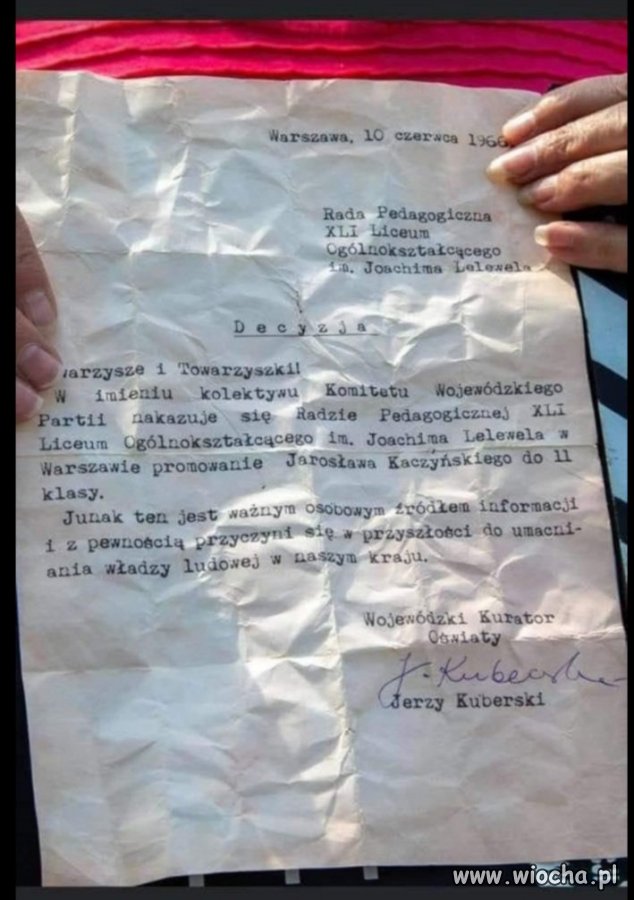 Warszawa, 10 czerwca 1966.
Rada Pedagogiczna
XLI Liceum
Ogólnokształcącego
im. Joachima Lelewela
Decyzja
warzysze i Towarzyszki!
W imieniu kolektywu Komitetu Wojewódzkiego
Partii nakazuje się Radzie Pedagogicznej XLI
Liceum Ogólnokształcącego im. Joachima Lelewela w
Warszawie promowanie Jarosława Kaczyńskiego do 11
klasy.
Junak ten jest ważnym osobowym źródłem informacji
i z pewnością przyczyni się w przyszłości do umacni-
ania władzy ludowej w naszym kraju.
Wojewódzki Kurator
Oświaty
J. Kuberski
Jerzy Kuberski
www.wiocha.pl